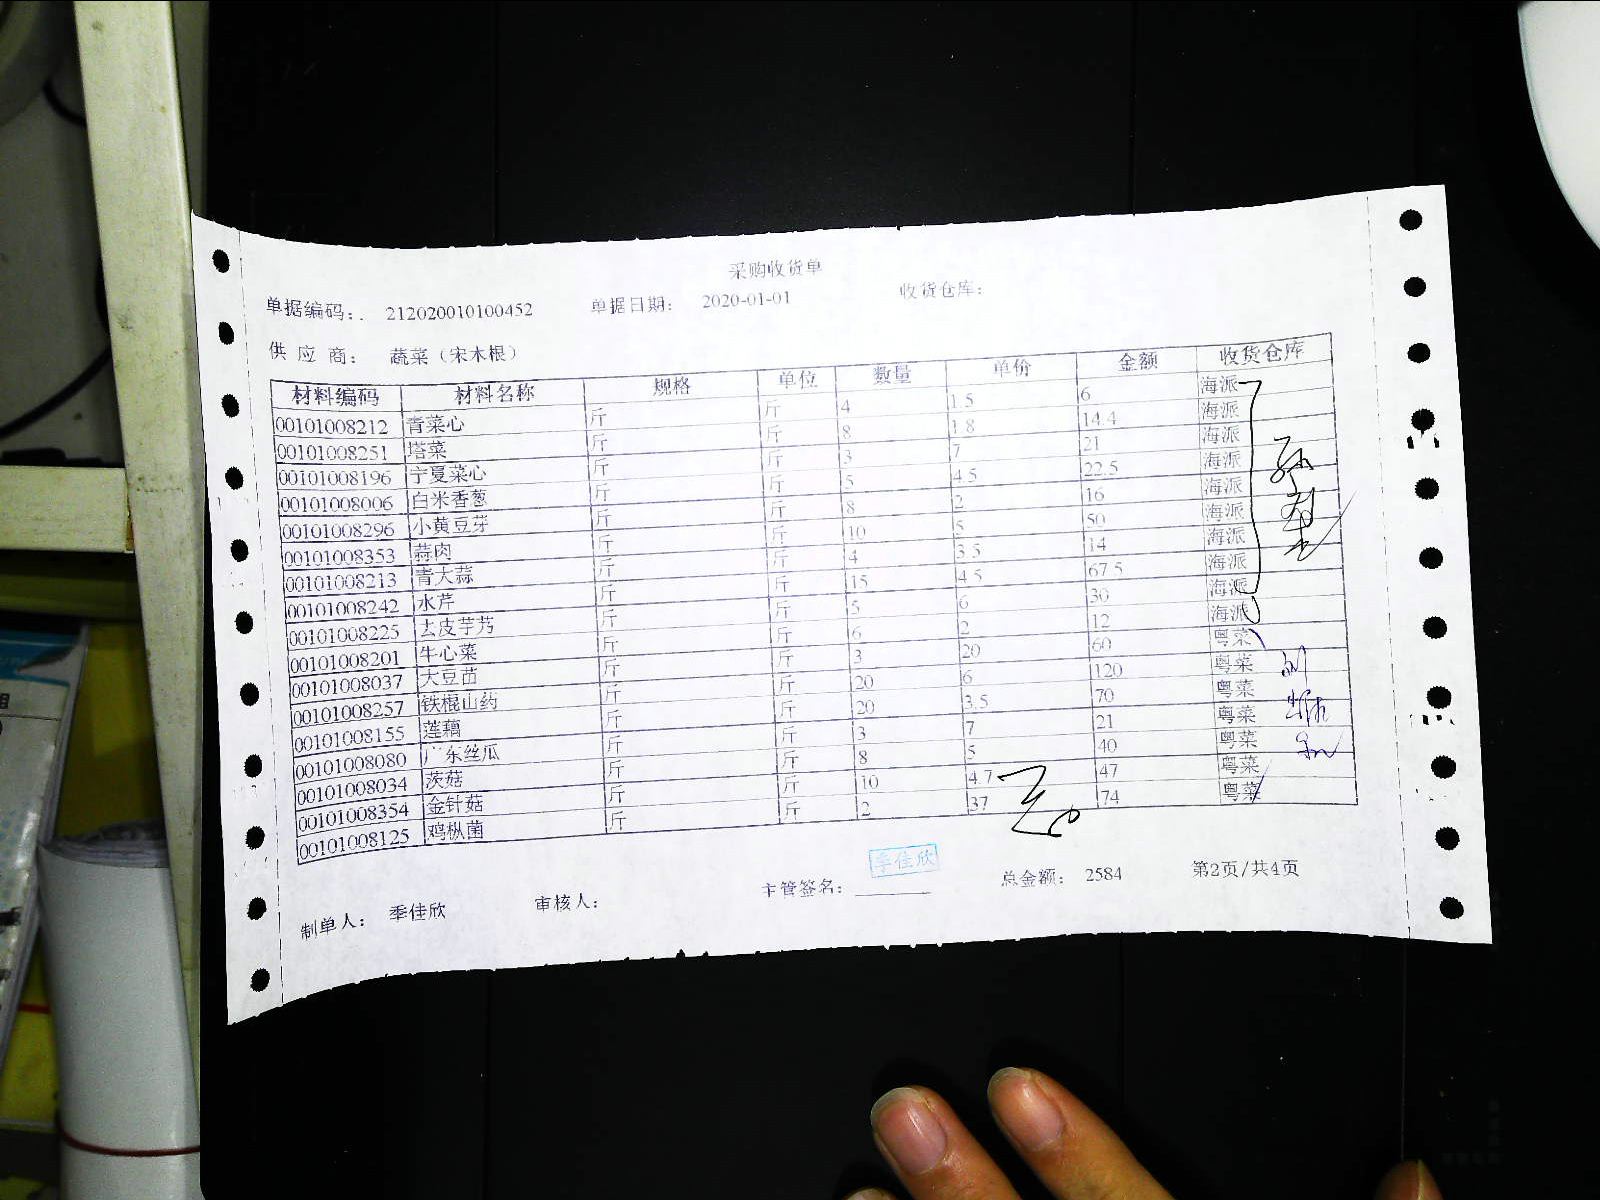 采购收货单
单据编码： 212020010100452 单据日期： 2020-01-01 收货仓库：
供 应 商： 蔬菜（宋木根）
材料编码 材料名称 规格 单位 数量 单价 金额 收货仓库
00101008212 青菜心 斤 斤 4 1.5 6 海派
00101008251 塔菜 斤 斤 8 1.8 14.4 海派
00101008196 宁夏菜心 斤 斤 3 7 21 海派
00101008006 白米香葱 斤 斤 5 4.5 22.5 海派
00101008296 小黄豆芽 斤 斤 8 2 16 海派
00101008353 蒜肉 斤 斤 10 5 50 海派
00101008213 青大蒜 斤 斤 4 3.5 14 海派
00101008242 水芹 斤 斤 15 4.5 67.5 海派
00101008225 去皮芋艿 斤 斤 5 6 30 海派
00101008201 牛心菜 斤 斤 6 2 12 海派
00101008037 大豆苗 斤 斤 3 20 60 粤菜
00101008257 铁棍山药 斤 斤 20 6 120 粤菜
00101008155 莲藕 斤 斤 20 3.5 70 粤菜
00101008080 广东丝瓜 斤 斤 3 7 21 粤菜
00101008034 茨菇 斤 斤 8 5 40 粤菜
00101008354 金针菇 斤 斤 10 4.7 47 粤菜
00101008125 鸡枞菌 斤 斤 2 37 74 粤菜
制单人： 季佳欣 审核人： 主管签名： 季佳欣 总金额： 2584 第2页/共4页